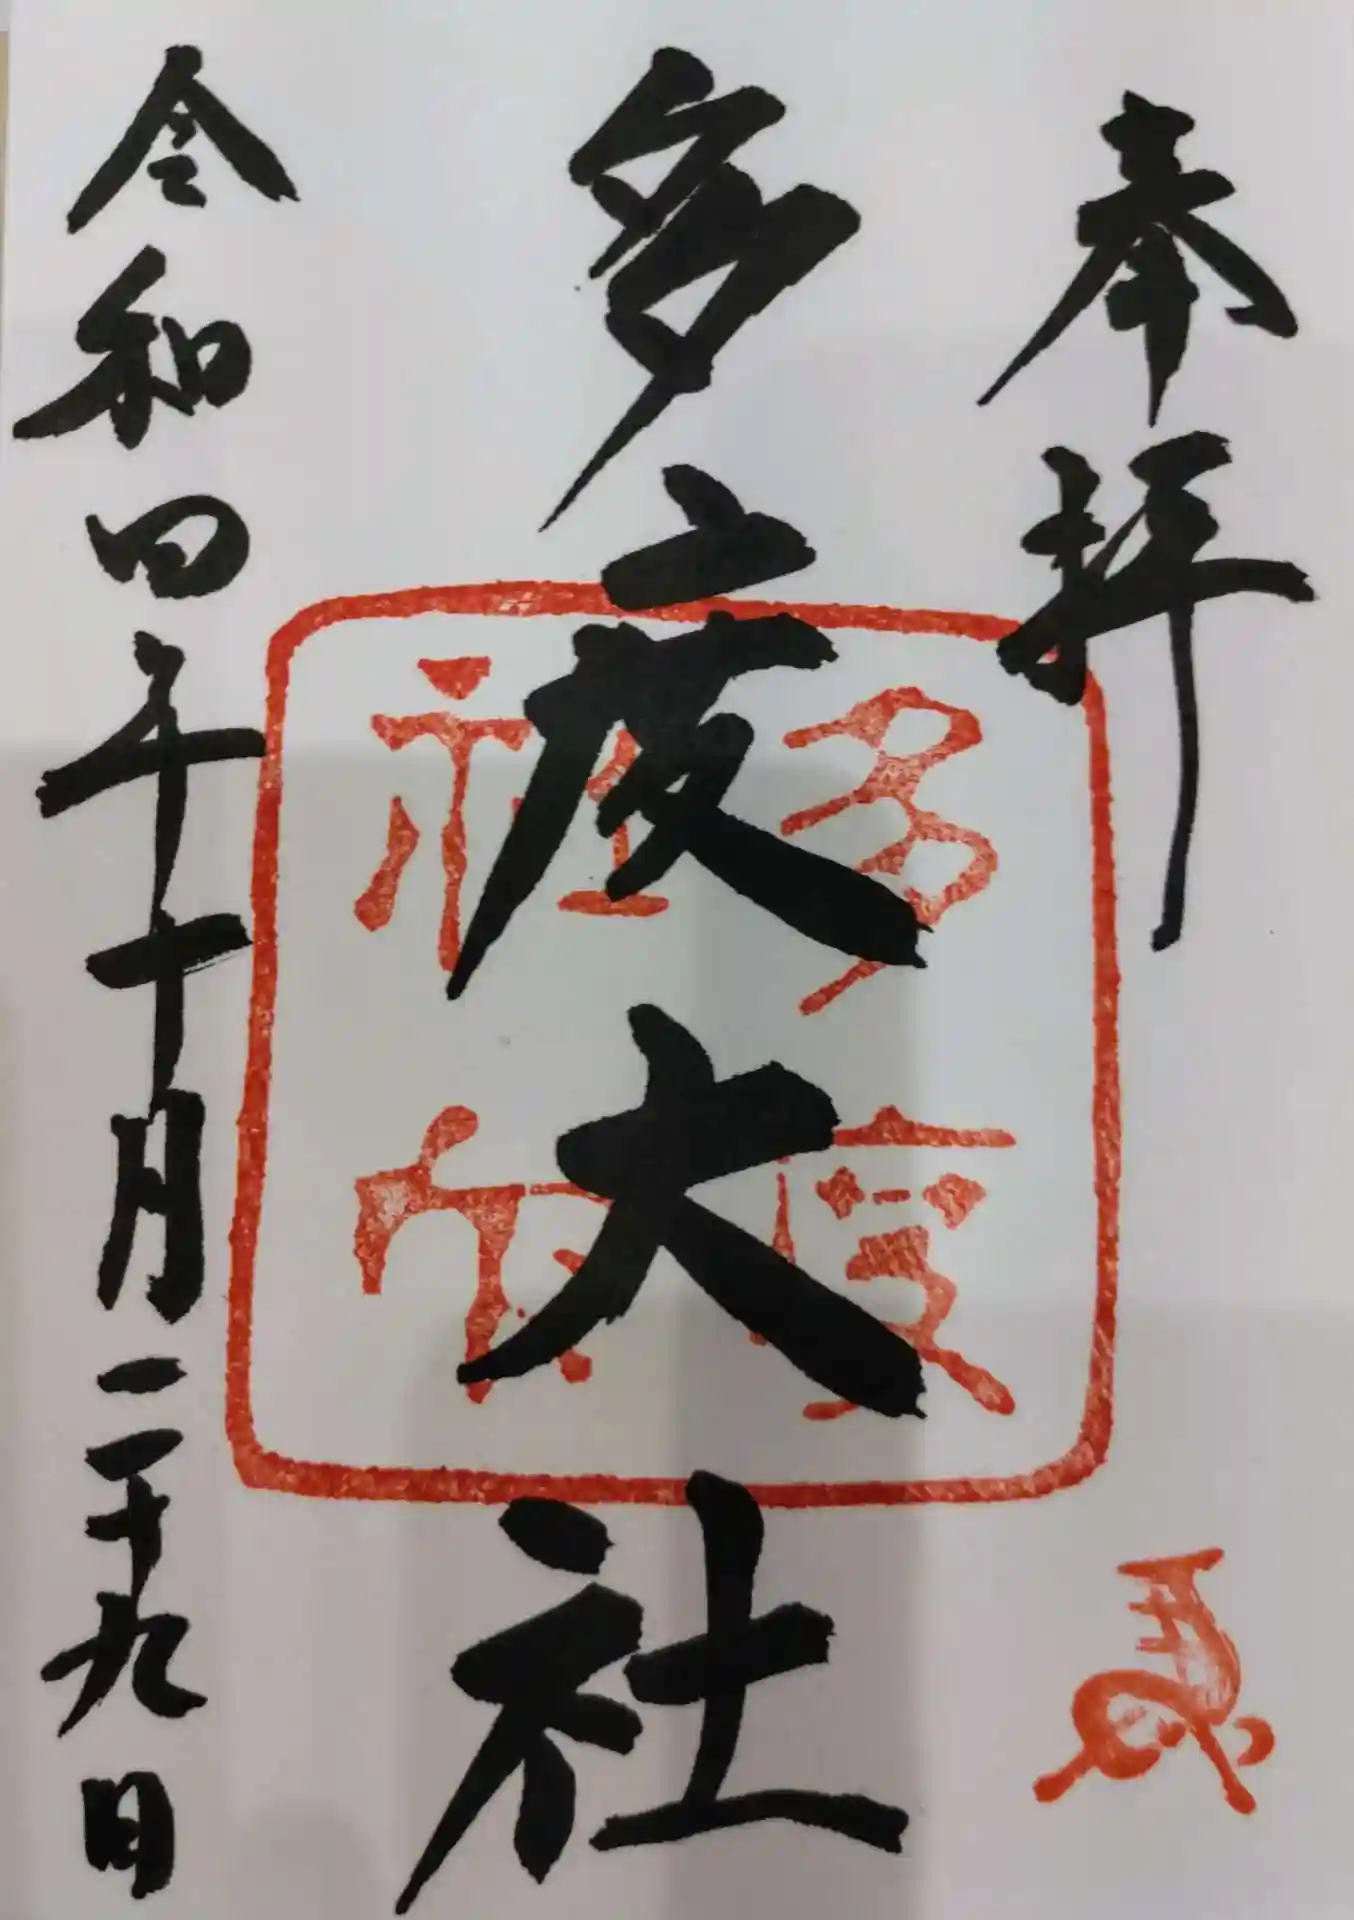 奉拝
多度大社
令和四年十月二十九日
多度
社印